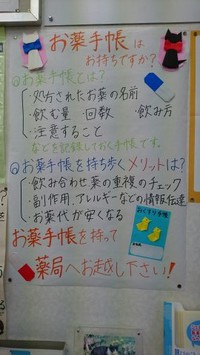 お薬手帳は
お持ちですか?
Qお薬手帳とは?
・処方されたお薬の名前
・飲む量・回数・飲み方
・注意すること
などを記録しておく手帳です。
Qお薬手帳を持ち歩くメリットは?
・飲み合わせ薬の重複のチェック
・副作用、アレルギーなどの情報伝達
・お薬代が安くなる
おくすり手帳
お薬手帳を持って
薬局へお越し下さい!